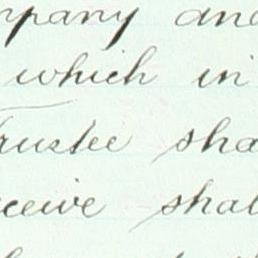 mpany and
which in
Trustee sha
ceive shal